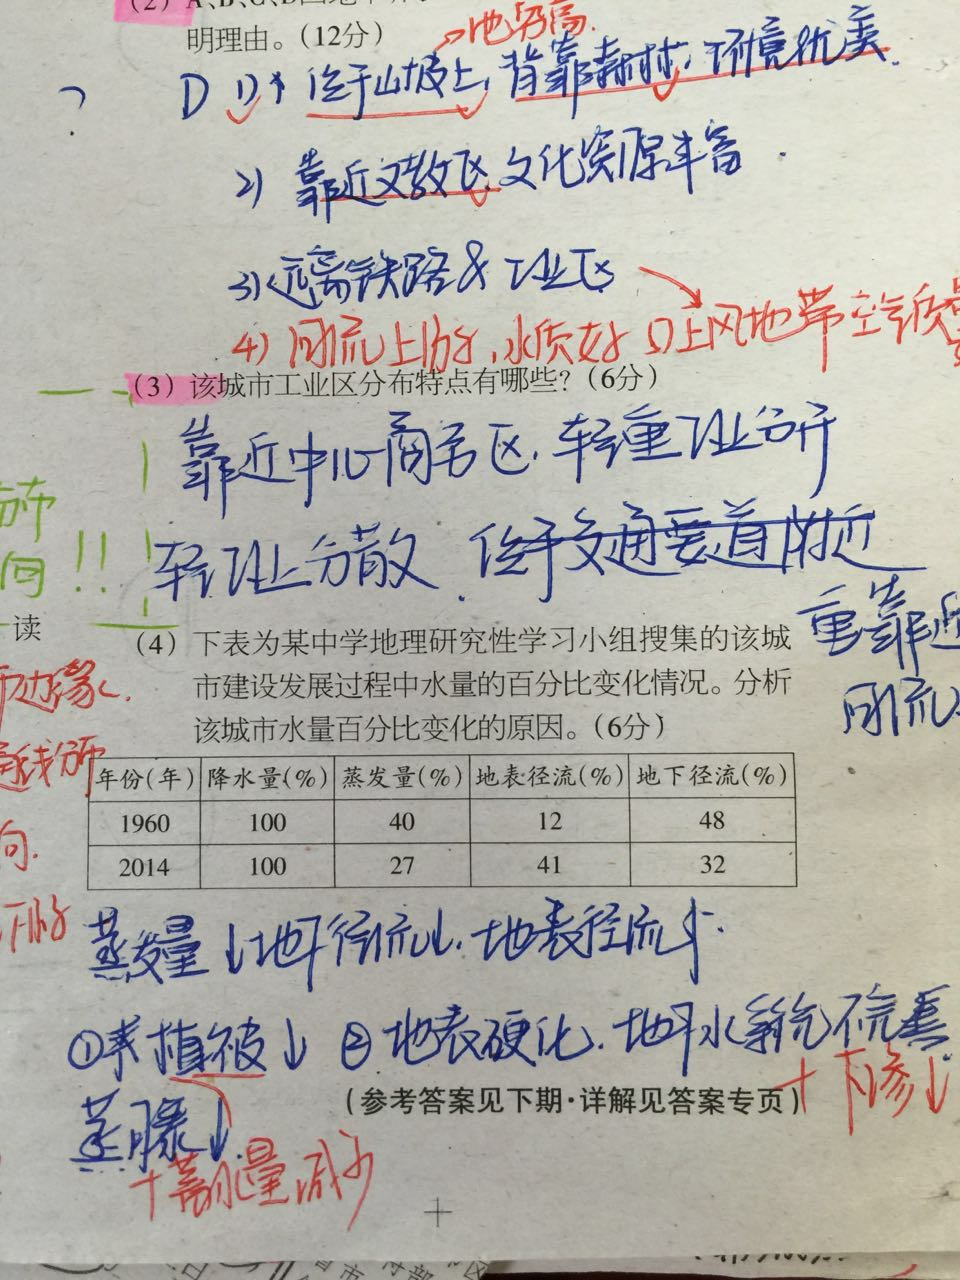 明理由。(12分)
地势高
D 1) 位于山坡上,背靠森林,环境优美.
2) 靠近文教区,文化资源丰富.
3) 远离铁路&工业区
4) 河流上游,水质好
上风地带 空气质量
(3) 该城市工业区分布特点有哪些?(6分)
靠近中心商务区,轻重工业分开
轻工业分散. 位于交通要道附近
重靠近
河流
布
向!!
读
(4) 下表为某中学地理研究性学习小组搜集的该城
市建设发展过程中水量的百分比变化情况。分析
该城市水量百分比变化的原因。(6分)
边缘.
年份(年) 降水量(%) 蒸发量(%) 地表径流(%) 地下径流(%)
1960 100 40 12 48
2014 100 27 41 32
向.
下游
蒸发量↓地下径流↓.地表径流↑.
① 植被↓ ②地表硬化.地下水系统不完善.
+下渗↓
(参考答案见下期·详解见答案专页)
蒸腾↓.
+蓄水量减少